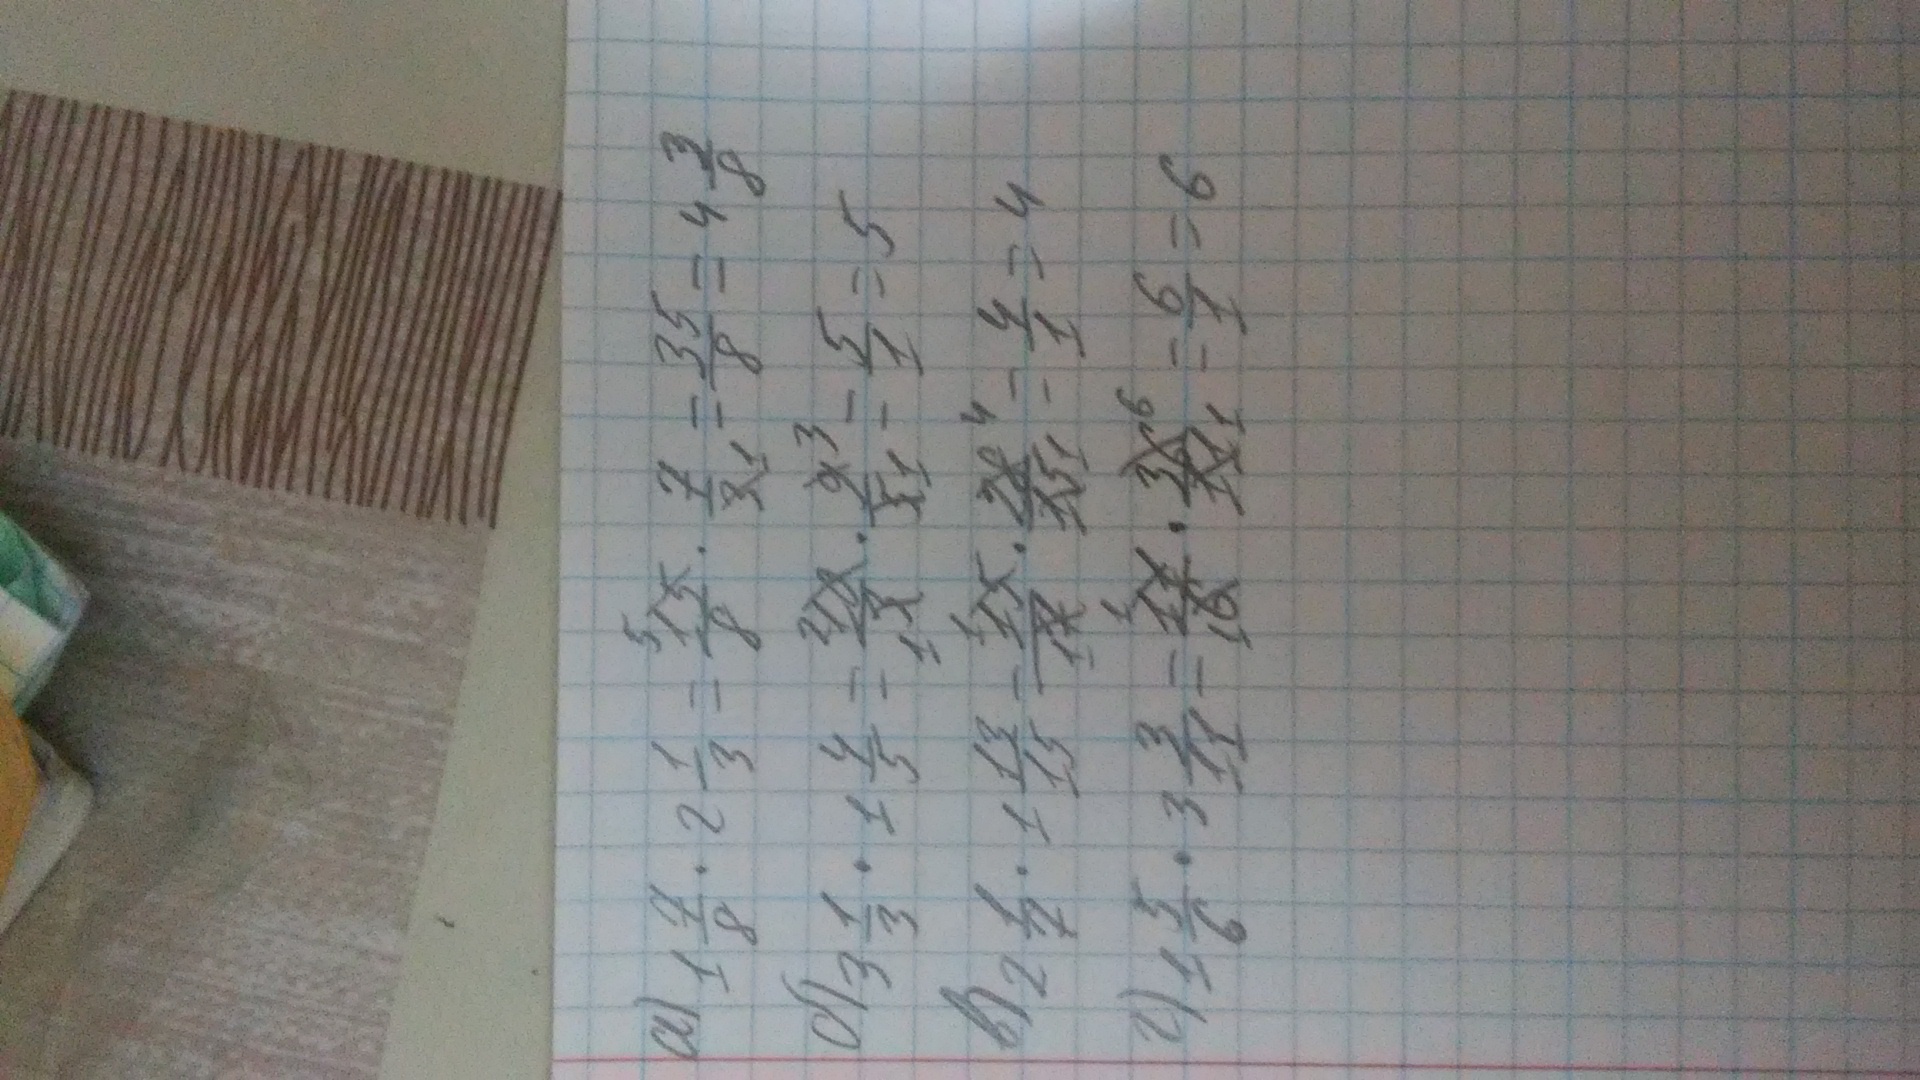 а) 1 7/8 · 2 1/3 = 15/8 · 7/3 = 35/8 = 4 3/8
б) 3 1/3 · 1 4/5 = 10/3 · 9/5 = 5/1 = 5
в) 2 1/7 · 1 13/15 = 15/7 · 28/15 = 4/1 = 4
г) 1 5/6 · 3 3/11 = 11/6 · 36/11 = 6/1 = 6